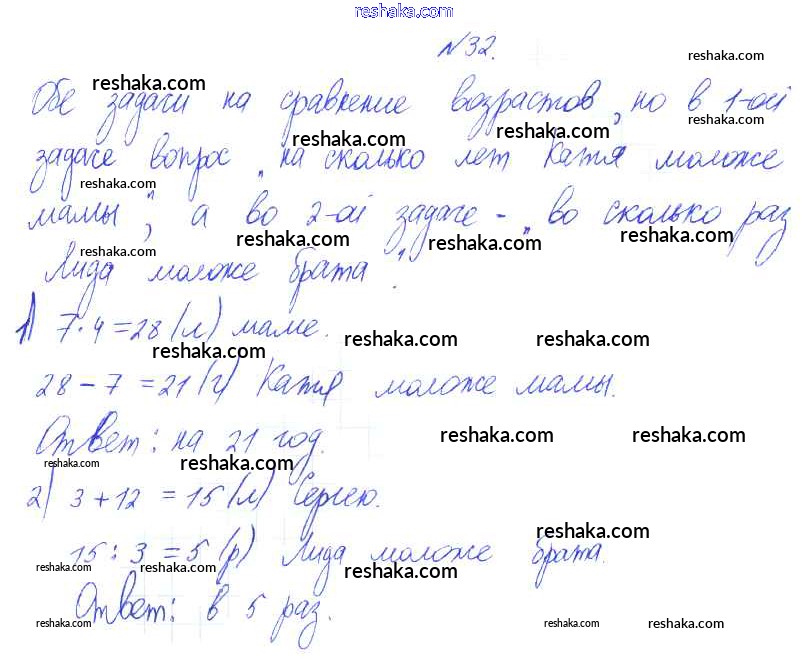 reshaka.com
№32.
reshaka.com
reshaka.com
Обе задачи на сравнение возрастов, но в 1-ой
reshaka.com reshaka.com reshaka.com
задаче вопрос „на сколько лет Катя моложе
reshaka.com
мамы", а во 2-ой задаче - „во сколько раз
reshaka.com reshaka.com reshaka.com reshaka.com
Лида моложе брата".
1) 7·4=28(л) маме.
reshaka.com reshaka.com reshaka.com
28-7=21(г) Катя моложе мамы.
Ответ: на 21 год.
reshaka.com reshaka.com reshaka.com
2) 3+12=15(л) Сергею.
reshaka.com
15:3=5(р) Лида моложе брата.
reshaka.com reshaka.com reshaka.com
Ответ: в 5 раз.
reshaka.com reshaka.com reshaka.com